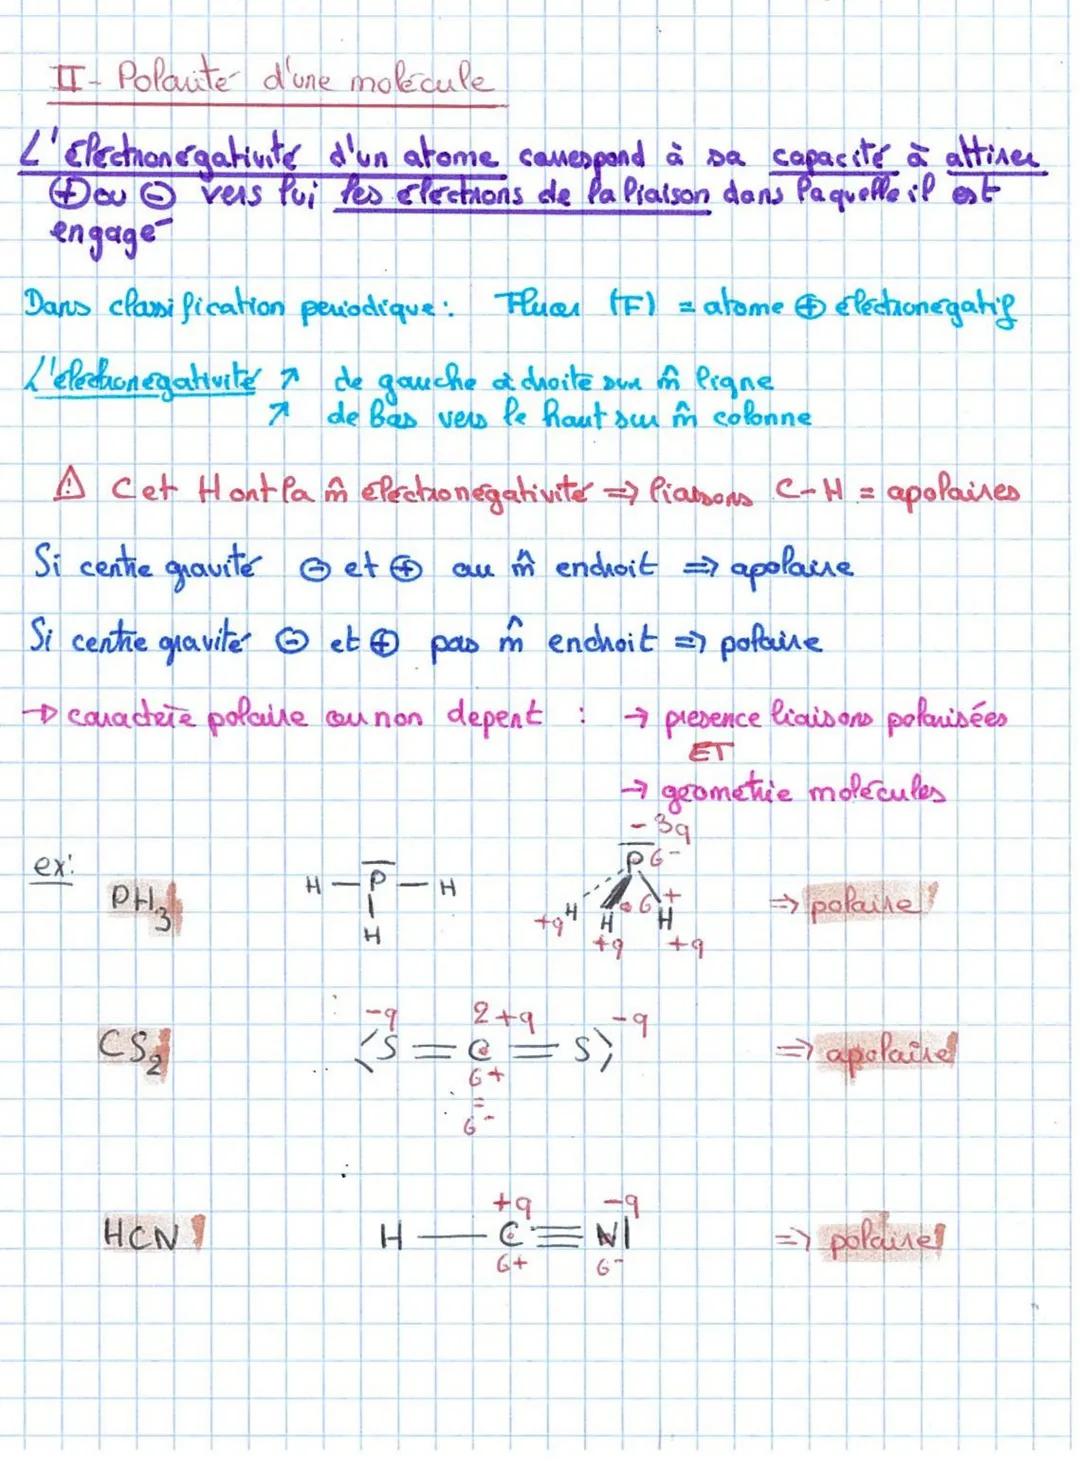 II - Polarité d'une molécule
L'électronégativité d'un atome correspond à sa capacité à attirer
⊕ ou ⊖ vers lui les électrons de la liaison dans laquelle il est
engagé
Dans classification periodique : Fluor (F) = atome ⊕ électronegatif
L'electronegativité ↗ de gauche à droite sur m̂ ligne
↗ de Bas vers le haut sur m̂ colonne
⚠ C et H ont la m̂ électronégativité => liaisons C-H = apolaires
Si centre gravité ⊖ et ⊕ au m̂ endroit => apolaire
Si centre gravité ⊖ et ⊕ pas m̂ endroit => polaire
→ caractère polaire ou non depent : → presence liaisons polarisées
ET
→ géométrie molécules
ex:
PH3
H — P — H
H
-3q
P G-
G+
H H H
+q +q +q
=> polaire
CS2
-q 2+q -q
S = C = S
G+
=
G-
=> apolaire
HCN
+q -q
H — C ≡ N|
G+ G-
=> polaire